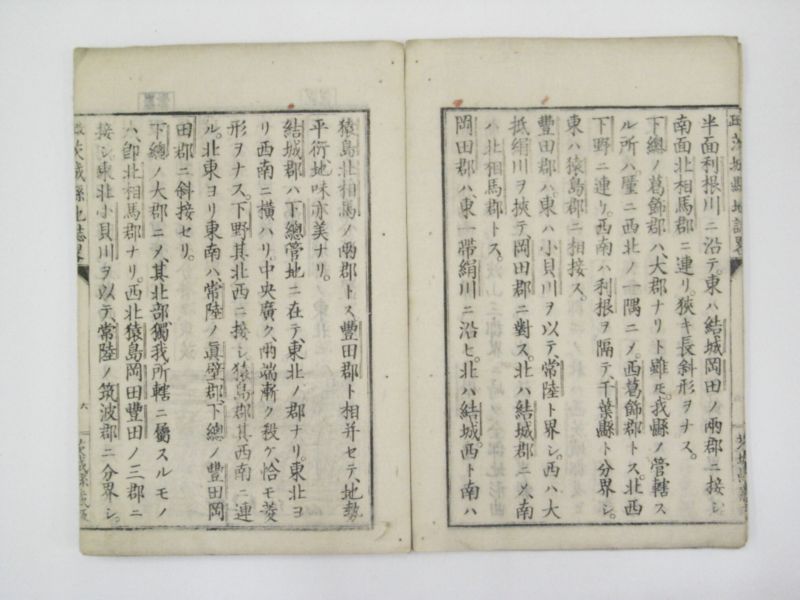 茨城縣地誌畧
半面利根川ニ沿テ、東ハ結城岡田ノ兩郡ニ接シ
南面北相馬郡ニ連リ。狹キ長斜形ヲナス。
下總ノ葛飾郡ハ、大郡ナリト雖モ、我縣ノ管轄ス
ル所ハ、廑ニ西北ノ一隅ニメ、西葛飾郡トス。北西
下野ニ連リ。西南ハ利根ヲ隔テ千葉縣ト分界シ。
東ハ猿島郡ニ相接ス。
豐田郡ハ、東ハ小貝川ヲ以テ、常陸ト界シ。西ハ大
抵絹川ヲ挾テ、岡田郡ニ對ス。北ハ結城郡ニメ、南
ハ北相馬郡トス。
岡田郡ハ、東一帶絹川ニ沿ヒ。北ハ結城。西ト南ハ
猿島北相馬ノ兩郡トス。豐田郡ト相并セテ、地勢
平衍、地味亦美ナリ。
結城郡ハ、下總管地ニ在テ、東北ノ郡ナリ。東北ヨ
リ西南ニ横ハリ。中央廣ク、兩端漸ク殺ケ、恰モ菱
形ヲナス。下野其北西ニ接シ、猿島郡其西南ニ連
ル。北東ヨリ東南ハ、常陸ノ眞壁郡、下總ノ豐田岡
田郡ニ斜接セリ。
下總ノ大郡ニメ、其北部獨我所轄ニ屬スルモノ
ハ、卽北相馬郡ナリ。西北猿島岡田豐田ノ三郡ニ
接シ、東北小貝川ヲ以テ、常陸ノ筑波郡ニ分界シ。
茨城縣地誌畧 六 茨城縣藏版